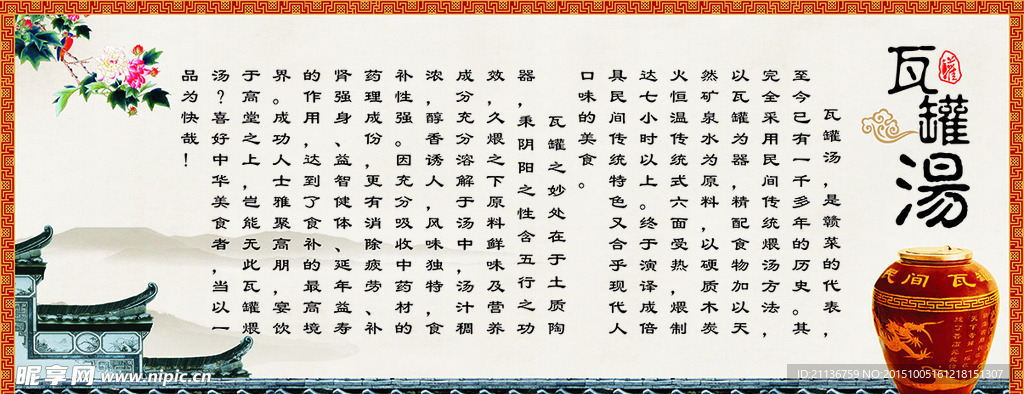 瓦罐湯
瓦罐汤，是赣菜的代表，
至今已有一千多年的历史。其
完全采用民间传统煨汤方法，
以瓦罐为器，精配食物加以天
然矿泉水为原料，以硬质木炭
火恒温传统式六面受热，煨制
达七小时以上。终于演译成倍
具民间传统特色又合乎现代人
口味的美食。
瓦罐之妙处在于土质陶
器，秉阴阳之性含五行之功
效，久煨之下原料鲜味及营养
成分充分溶解于汤中，汤汁稠
浓，醇香诱人，风味独特，食
补性强。因充分吸收中药材的
药理成份，更有消除疲劳、补
肾强身、益智健体、延年益寿
的作用，达到了食补的最高境
界。成功人士雅聚高朋，宴饮
于高堂之上，岂能无此瓦罐煨
汤？喜好中华美食者，当以一
品为快哉！
民间瓦
昵享网 www.nipic.cn
ID:21136759 NO:20151005161218151307